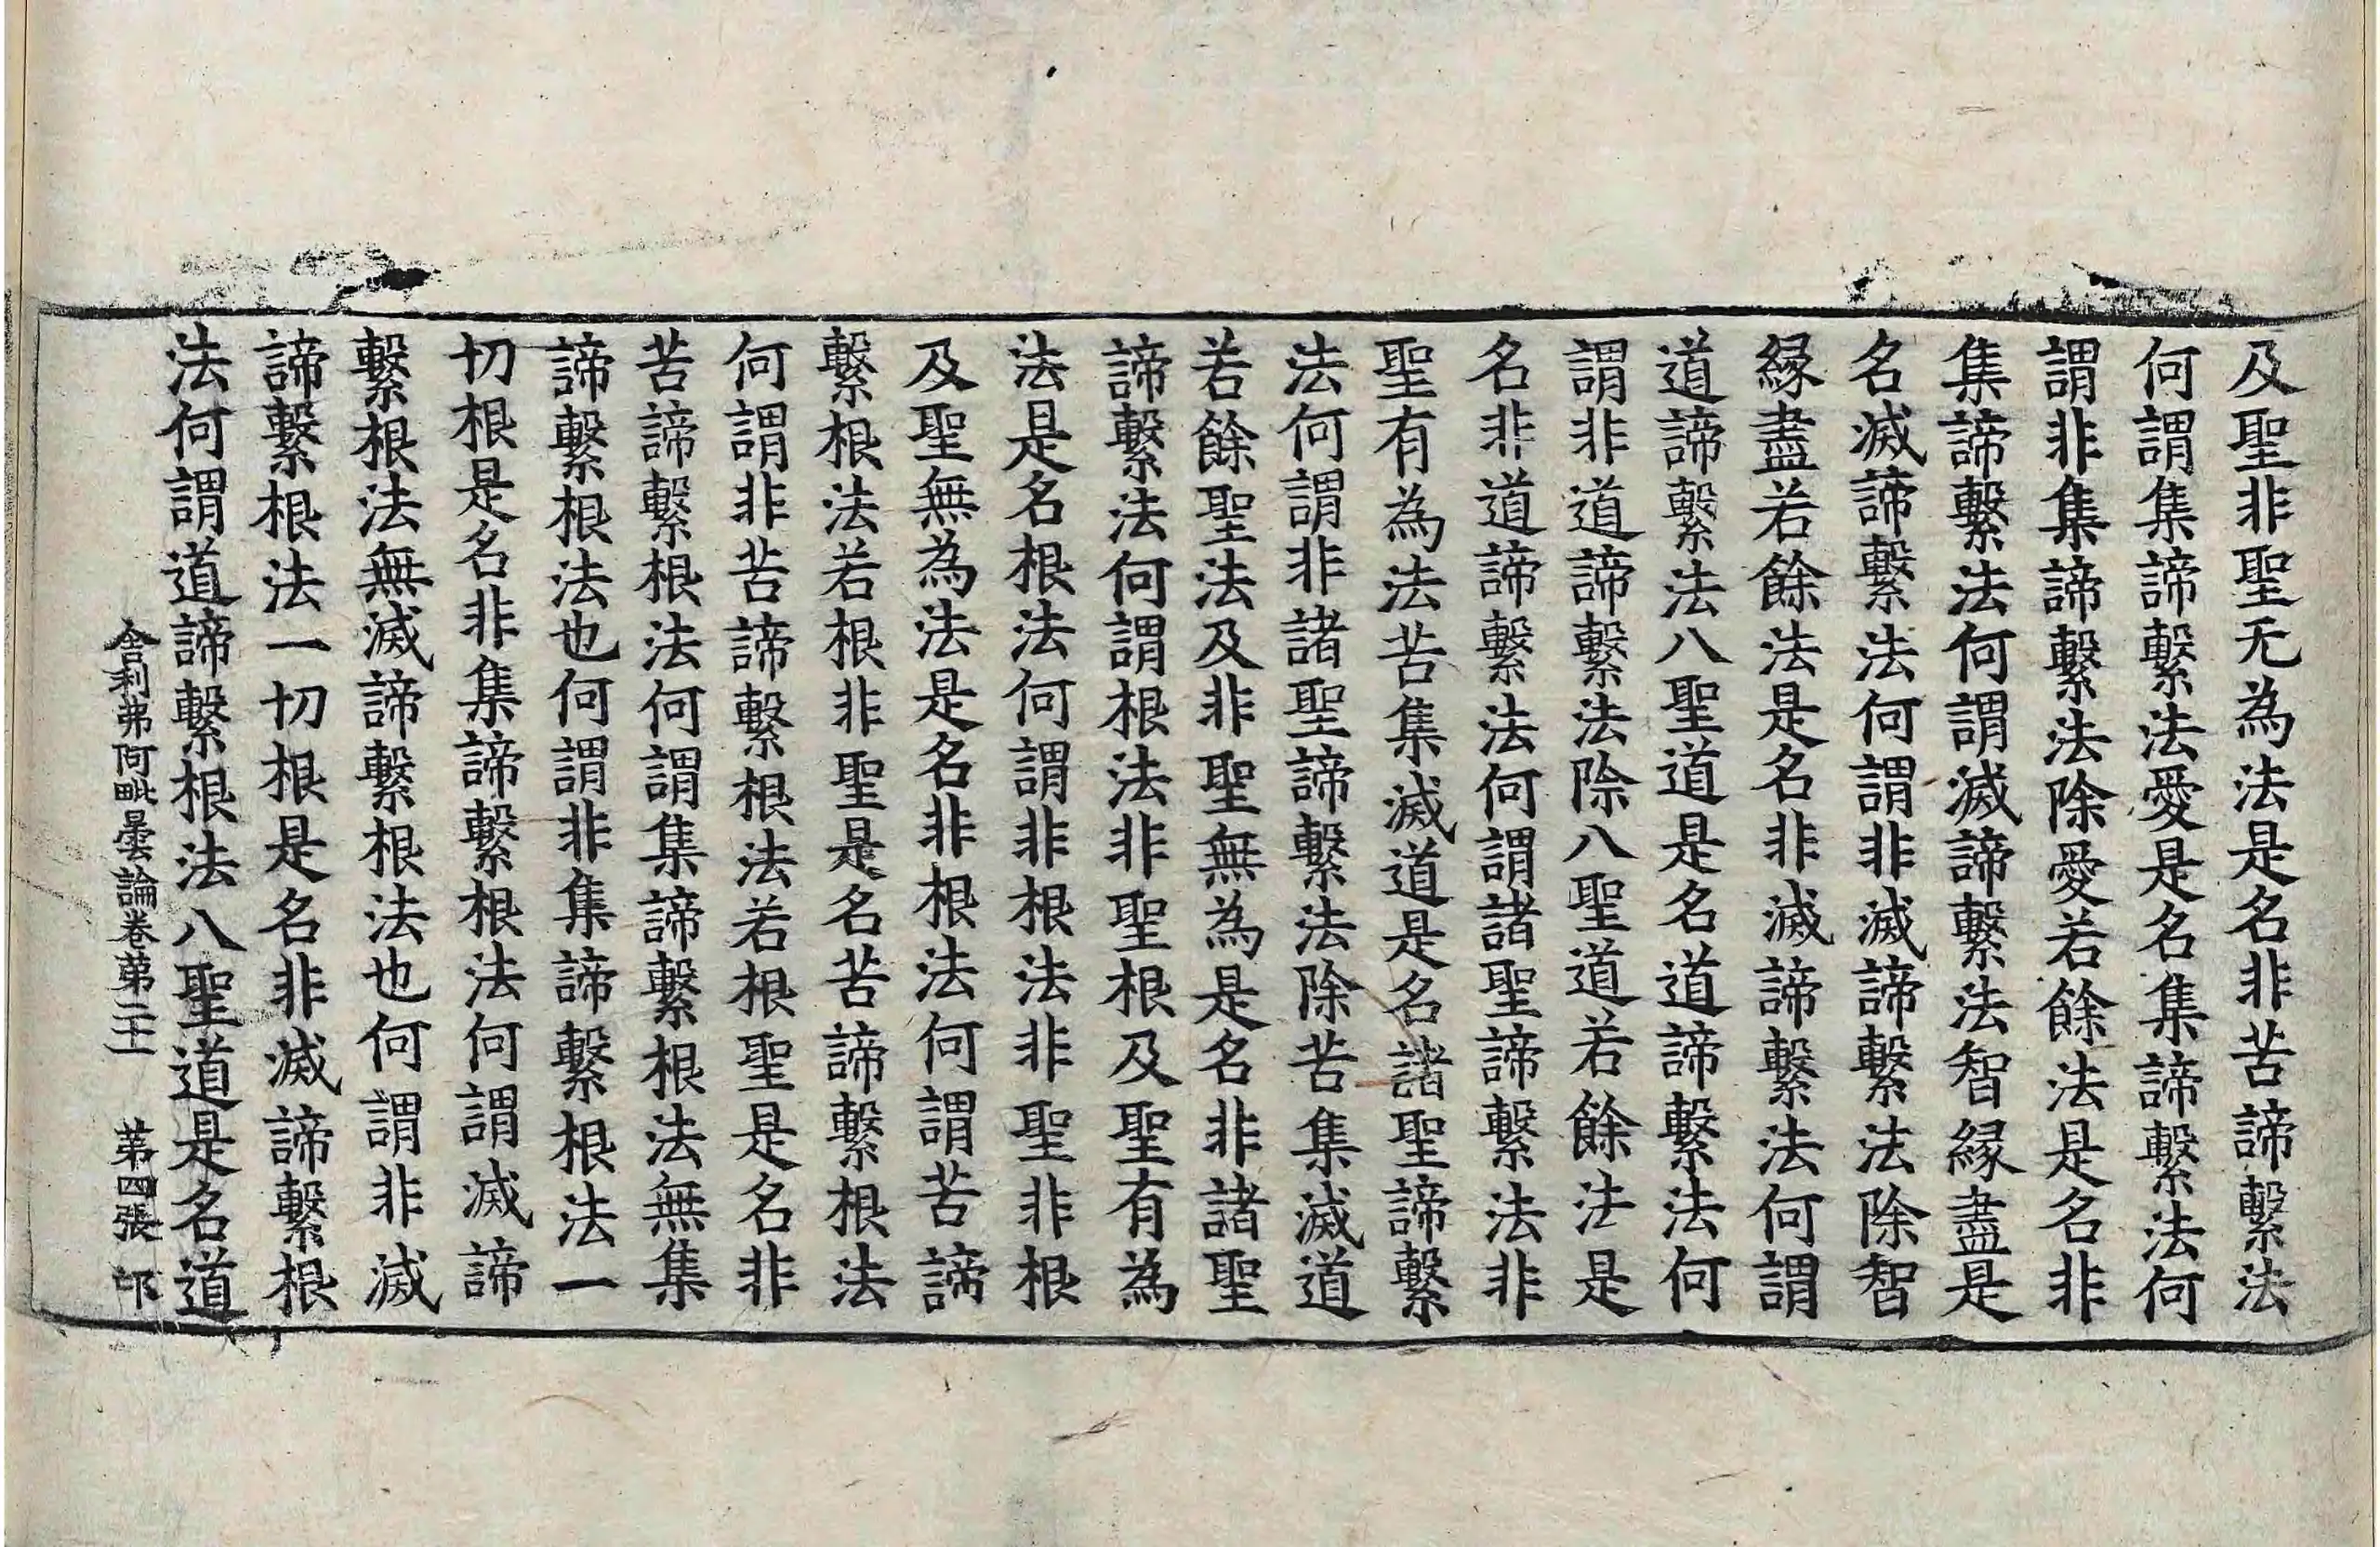 及聖非聖无為法是名非苦諦繫法
何謂集諦繫法愛是名集諦繫法何
謂非集諦繫法除愛若餘法是名非
集諦繫法何謂滅諦繫法智緣盡是
名滅諦繫法何謂非滅諦繫法除智
緣盡若餘法是名非滅諦繫法何謂
道諦繫法八聖道是名道諦繫法何
謂非道諦繫法除八聖道若餘法是
名非道諦繫法何謂諸聖諦繫法非
聖有為法苦集滅道是名諸聖諦繫
法何謂非諸聖諦繫法除苦集滅道
若餘聖法及非聖無為是名非諸聖
諦繫法何謂根法非聖根及聖有為
法是名根法何謂非根法非聖非根
及聖無為法是名非根法何謂苦諦
繫根法若根非聖是名苦諦繫根法
何謂非苦諦繫根法若根聖是名非
苦諦繫根法何謂集諦繫根法無集
諦繫根法也何謂非集諦繫根法一
切根是名非集諦繫根法何謂滅諦
繫根法無滅諦繫根法也何謂非滅
諦繫根法一切根是名非滅諦繫根
法何謂道諦繫根法八聖道是名道
舍利弗阿毗曇論卷第二十一 第四張